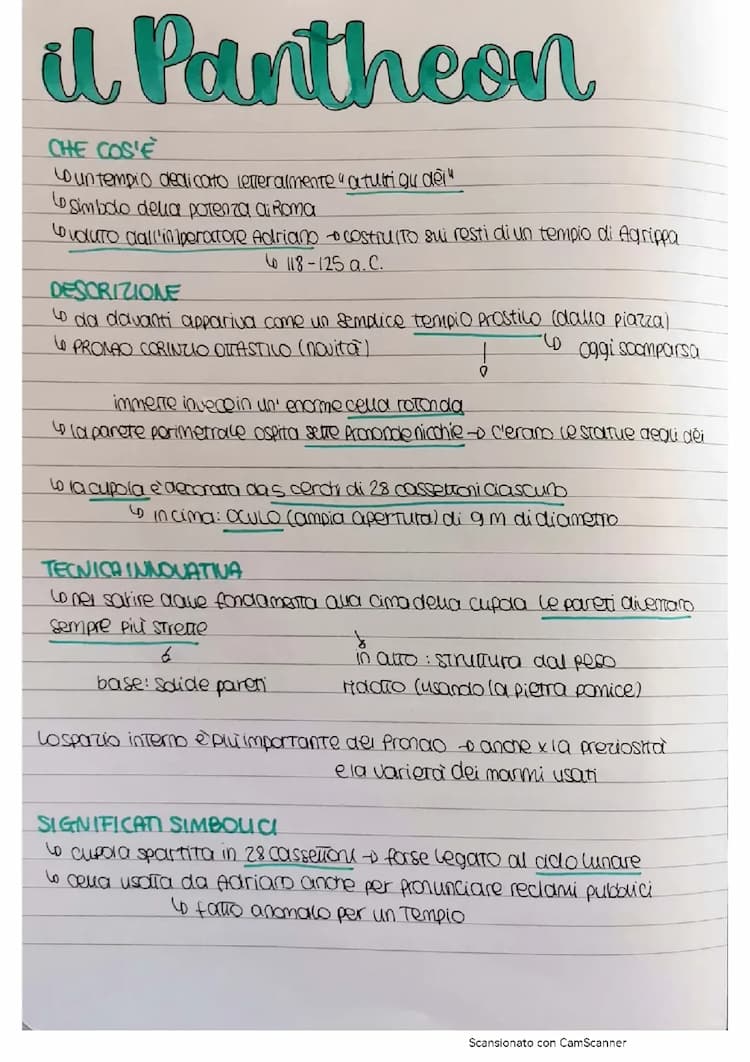 il Pantheon
CHE COS'È
↳ un tempio dedicato letteralmente "a tutti gli dèi"
↳ simbolo della potenza di Roma
↳ voluto dall'imperatore Adriano → costruito sui resti di un tempio di Agrippa
↳ 118-125 a.C.
DESCRIZIONE
↳ da davanti appariva come un semplice tempio prostilo (dalla piazza)
↳ PRONAO CORINZIO OTTASTILO (novità) ↳ oggi scomparsa
immette invece in un' enorme cella rotonda
↳ la parete perimetrale ospita sette profonde nicchie → c'erano le statue degli dèi
↳ la cupola è decorata da 5 cerchi di 28 cassettoni ciascuno
↳ in cima: OCULO (ampia apertura) di 9 m di diametro
TECNICA INNOVATIVA
↳ nel salire dalle fondamenta alla cima della cupola le pareti diventano
sempre più strette
in alto: struttura dal peso
base: solide pareti ridotto (usando la pietra pomice)
Lo spazio interno è più importante del pronao → anche x la preziosità
e la varietà dei marmi usati
SIGNIFICATI SIMBOLICI
↳ cupola spartita in 28 cassettoni → forse legato al ciclo lunare
↳ cella usata da Adriano anche per pronunciare reclami pubblici
↳ fatto anomalo per un tempio
Scansionato con CamScanner